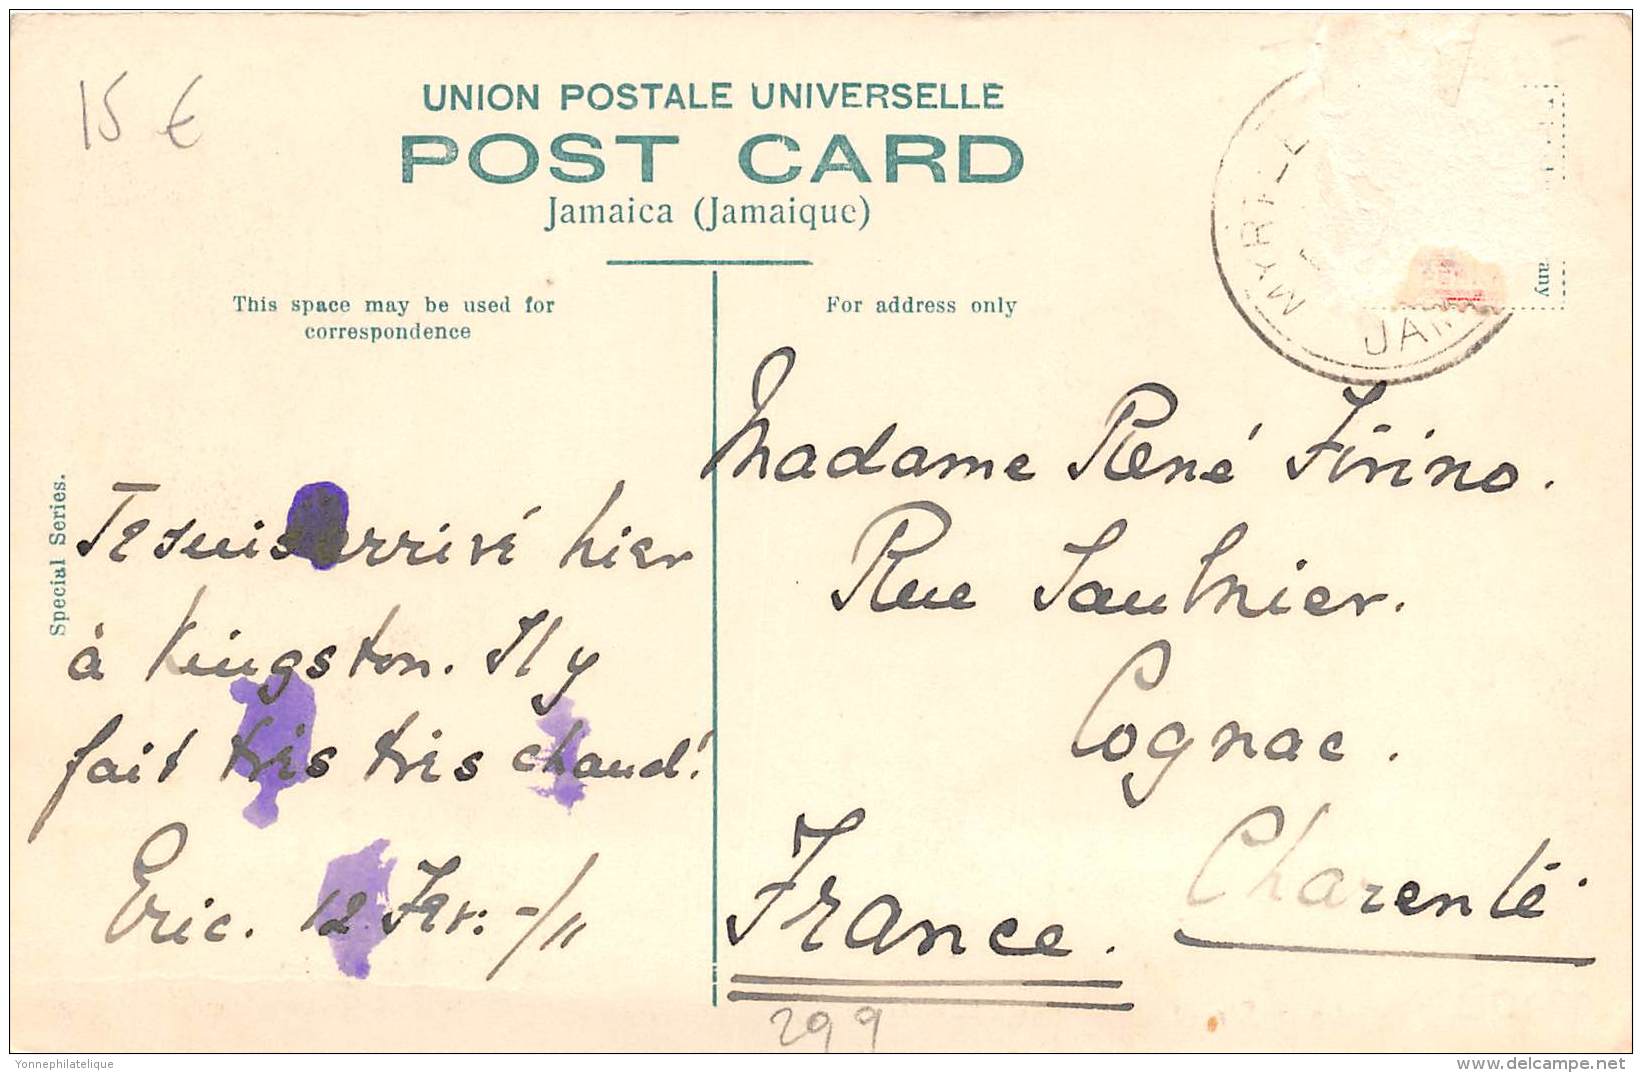 15 €
UNION POSTALE UNIVERSELLE
POST CARD
Jamaica (Jamaique)
This space may be used for
correspondence
For address only
any
JAM
Special Series.
Je suis arrivé hier
à Kingston. Il y
fait très très chaud!
Eric. 12 Fev: -/11
Madame René Firino.
Rue Saulnier.
Cognac.
Charente.
France.
299
Yonnephilatelique
delcampe.net